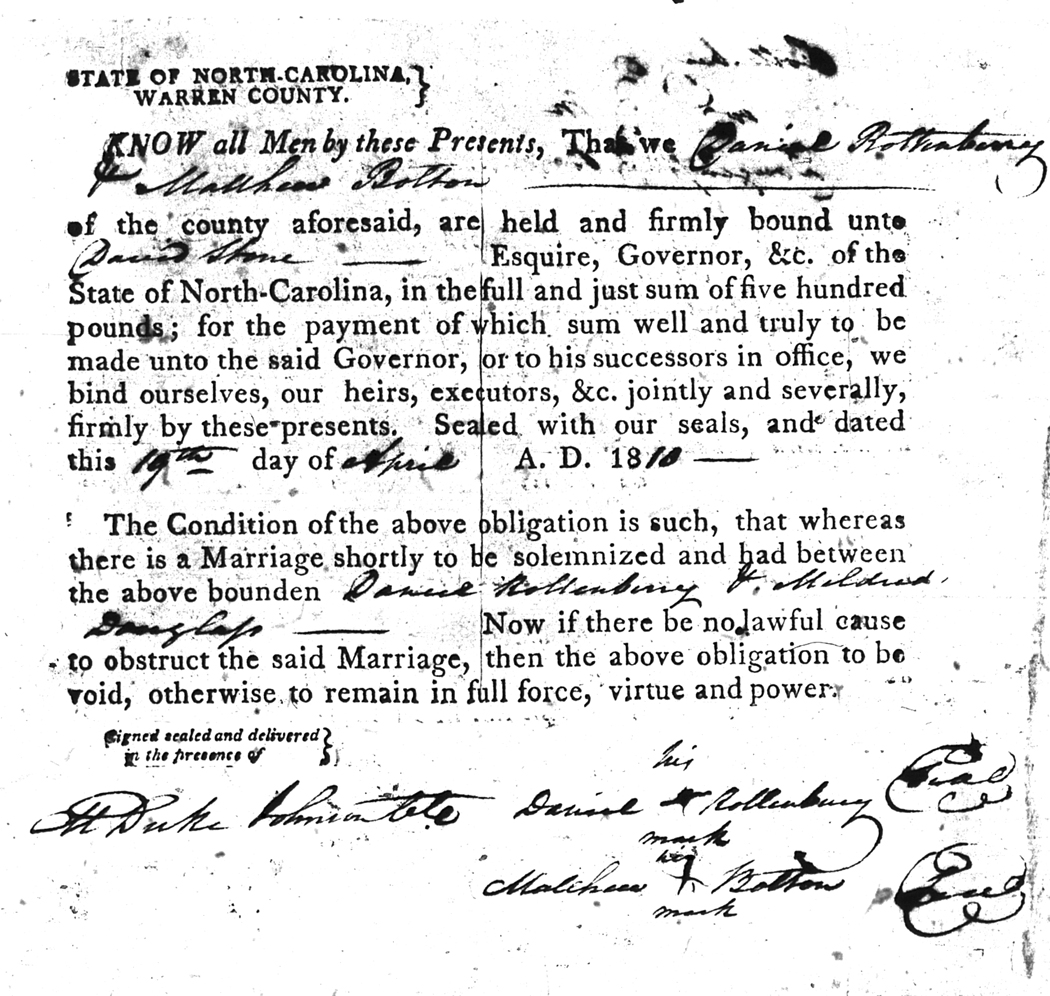 STATE OF NORTH-CAROLINA, }
WARREN COUNTY. }
KNOW all Men by these Presents, That we Daniel Rottenberry
& Matthew Botton
of the county aforesaid, are held and firmly bound unto
David Stone — Esquire, Governor, &c. of the
State of North-Carolina, in the full and just sum of five hundred
pounds; for the payment of which sum well and truly to be
made unto the said Governor, or to his successors in office, we
bind ourselves, our heirs, executors, &c. jointly and severally,
firmly by these presents. Sealed with our seals, and dated
this 19th day of April A. D. 1810 —
The Condition of the above obligation is such, that whereas
there is a Marriage shortly to be solemnized and had between
the above bounden Daniel Rottenberry & Mildred
Douglass — Now if there be no lawful cause
to obstruct the said Marriage, then the above obligation to be
void, otherwise to remain in full force, virtue and power.
Signed sealed and delivered }
in the presence of }
his
Daniel Rottenbury Seal
mark
M Duke Johnson
his
Matthew Botton Seal
mark